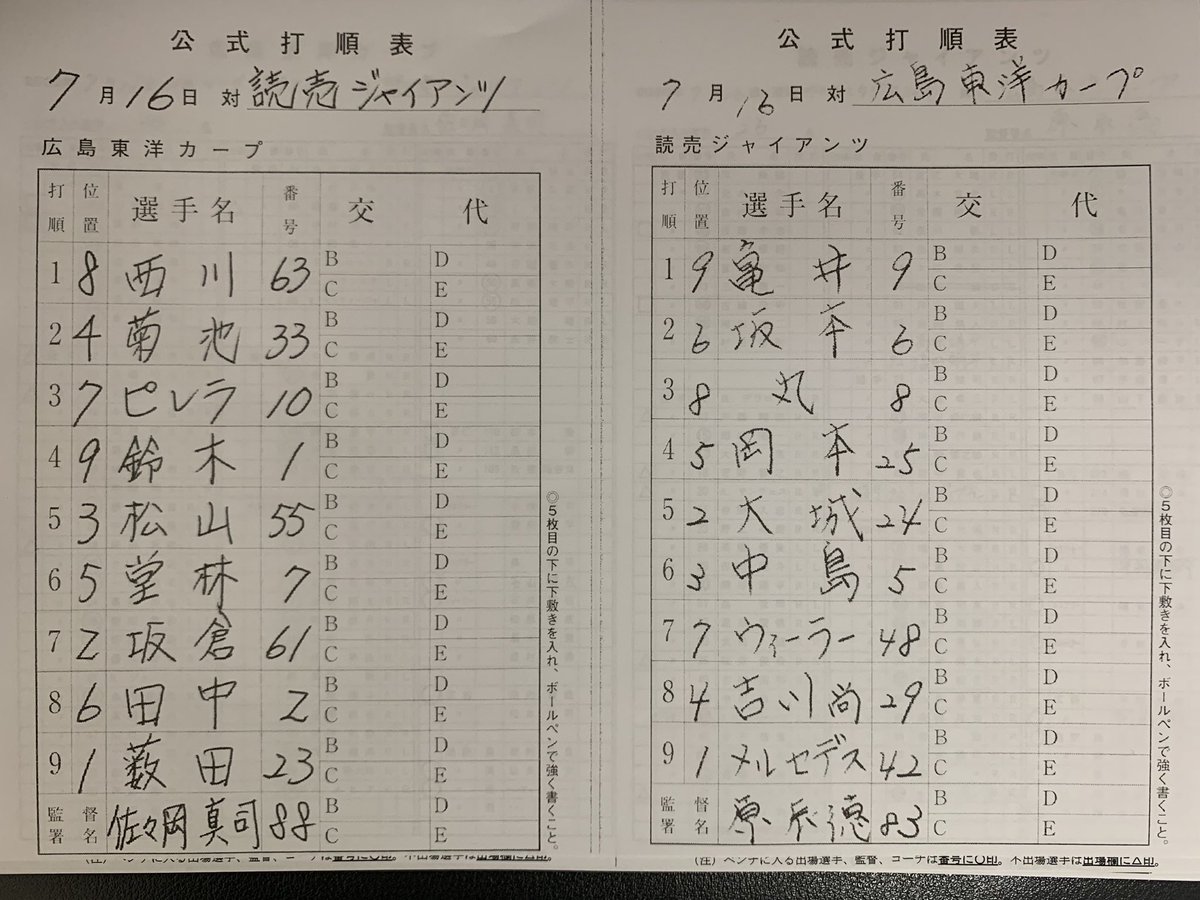 公式打順表
7月16日 対 読売ジャイアンツ
広島東洋カープ
打順 位置 選手名 番号 交代
1 8 西川 63 B D
C E
2 4 菊池 33 B D
C E
3 7 ピレラ 10 B D
C E
4 9 鈴木 1 B D
C E
5 3 松山 55 B D
C E
6 5 堂林 7 B D
C E
7 2 坂倉 61 B D
C E
8 6 田中 2 B D
C E
9 1 薮田 23 B D
C E
監督署名 佐々岡真司 88 B D
C E
◎5枚目の下に下敷きを入れ、ボールペンで強く書くこと。
(注)ベンチに入る出場選手、監督、コーチは番号に○印。不出場選手は出場欄に△印。
公式打順表
7月16日 対 広島東洋カープ
読売ジャイアンツ
打順 位置 選手名 番号 交代
1 9 亀井 9 B D
C E
2 6 坂本 6 B D
C E
3 8 丸 8 B D
C E
4 5 岡本 25 B D
C E
5 2 大城 24 B D
C E
6 3 中島 5 B D
C E
7 7 ウィーラー 48 B D
C E
8 4 吉川尚 29 B D
C E
9 1 メルセデス 42 B D
C E
監督署名 原辰徳 83 B D
C E
◎5枚目の下に下敷きを入れ、ボールペンで強く書くこと。
(注)ベンチに入る出場選手、監督、コーチは番号に○印。不出場選手は出場欄に△印。